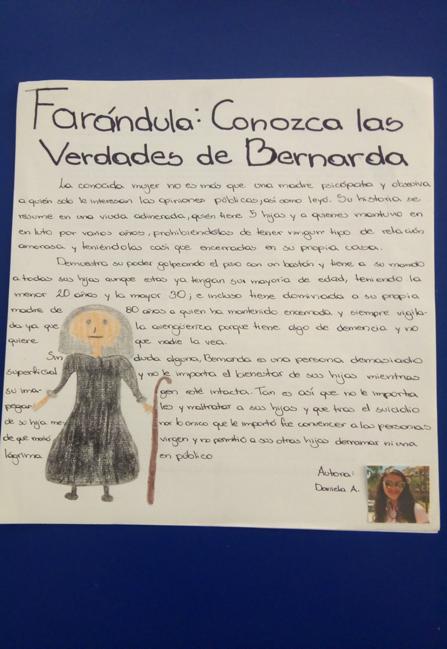 Farándula: Conozca las
Verdades de Bernarda
La conocida mujer no es más que una madre psicópata y obsesiva
a quién solo le interesan las opiniones públicas, así como leyó. Su historia se
resume en una viuda adinerada, quién tiene 5 hijas y a quienes mantuvo en
en luto por varios años, prohibiéndolas de tener ningún tipo de relación
amorosa y teniéndolas casi que encerradas en su propia casa.
Demuestra su poder golpeando el piso con un bastón y tiene a su mando
a todas sus hijas aunque estas ya tengan su mayoría de edad, teniendo la
menor 20 años y la mayor 30; e incluso tiene dominada a su propia
madre de 80 años a quien ha mantenido encerrada y siempre vigila-
da ya que la avergüenza porque tiene algo de demencia y no
quiere que nadie la vea.
Sin duda alguna, Bernarda es una persona demasiado
superficial y no le importa el bienestar de sus hijas mientras
su ima- gen esté intacta. Tan es así que no le importa
pegar les y maltratar a sus hijas y que tras el suicidio
de su hija me nor lo único que le importó fue convencer a las personas
de que murió virgen y no permitió a sus otras hijas derramar ni una
lágrima en público
Autora:
Daniela A.